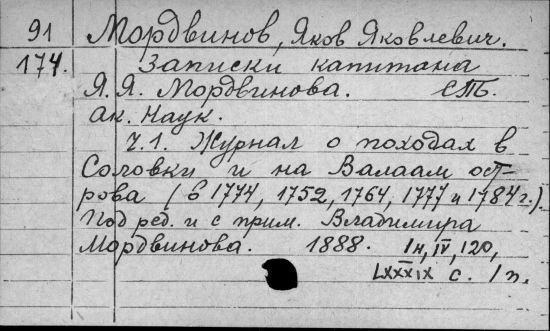 91 Мордвинов, Яков Яковлевич.
174. Записки капитана
Я. Я. Мордвинова. СПБ.
Ак. Наук.
Ч. 1. Журнал о походах в
Соловки и на Валаам ост-
рова (в 1774, 1752, 1764, 1777 и 1784 г.)
Под ред. и с прим. Владимира
Мордвинова. 1888. IV, 120,
LXXXIX с. 1 п.